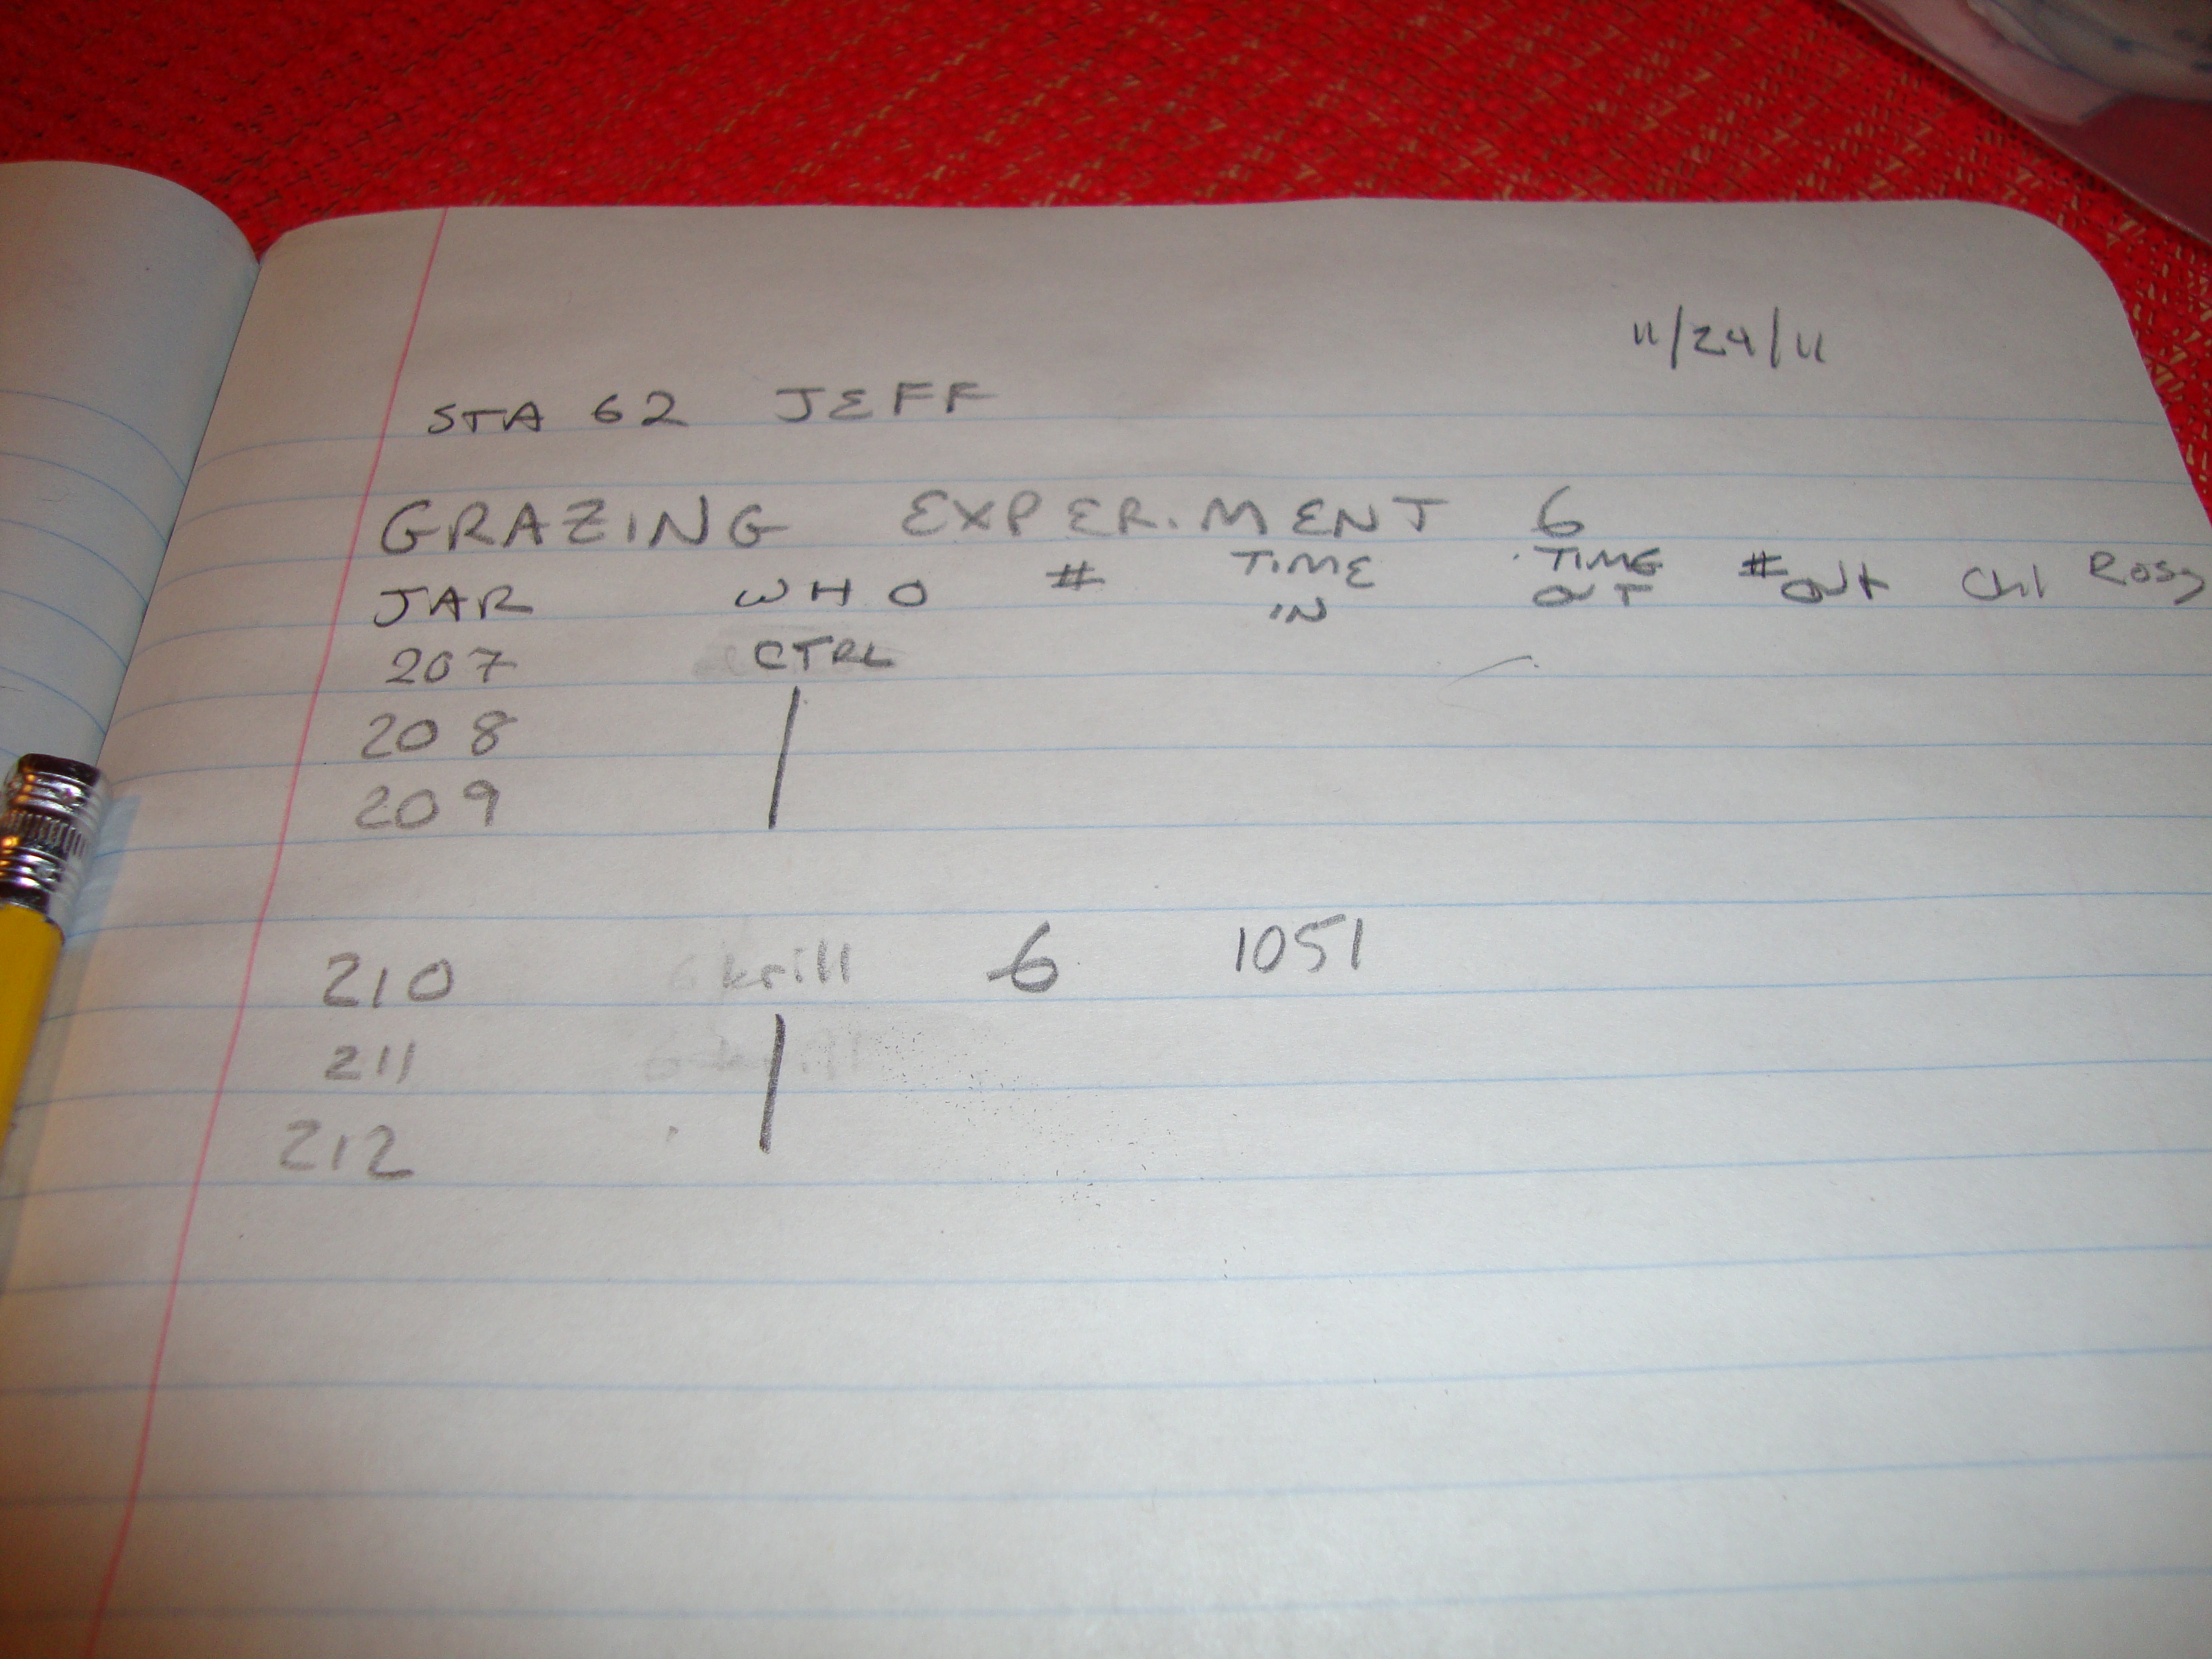 11/24/11
STA 62 JEFF
GRAZING EXPERIMENT 6
JAR WHO # TIME IN TIME OUT # OUT Chl
207 CTRL
208
209
210 krill 6 1051
211
212